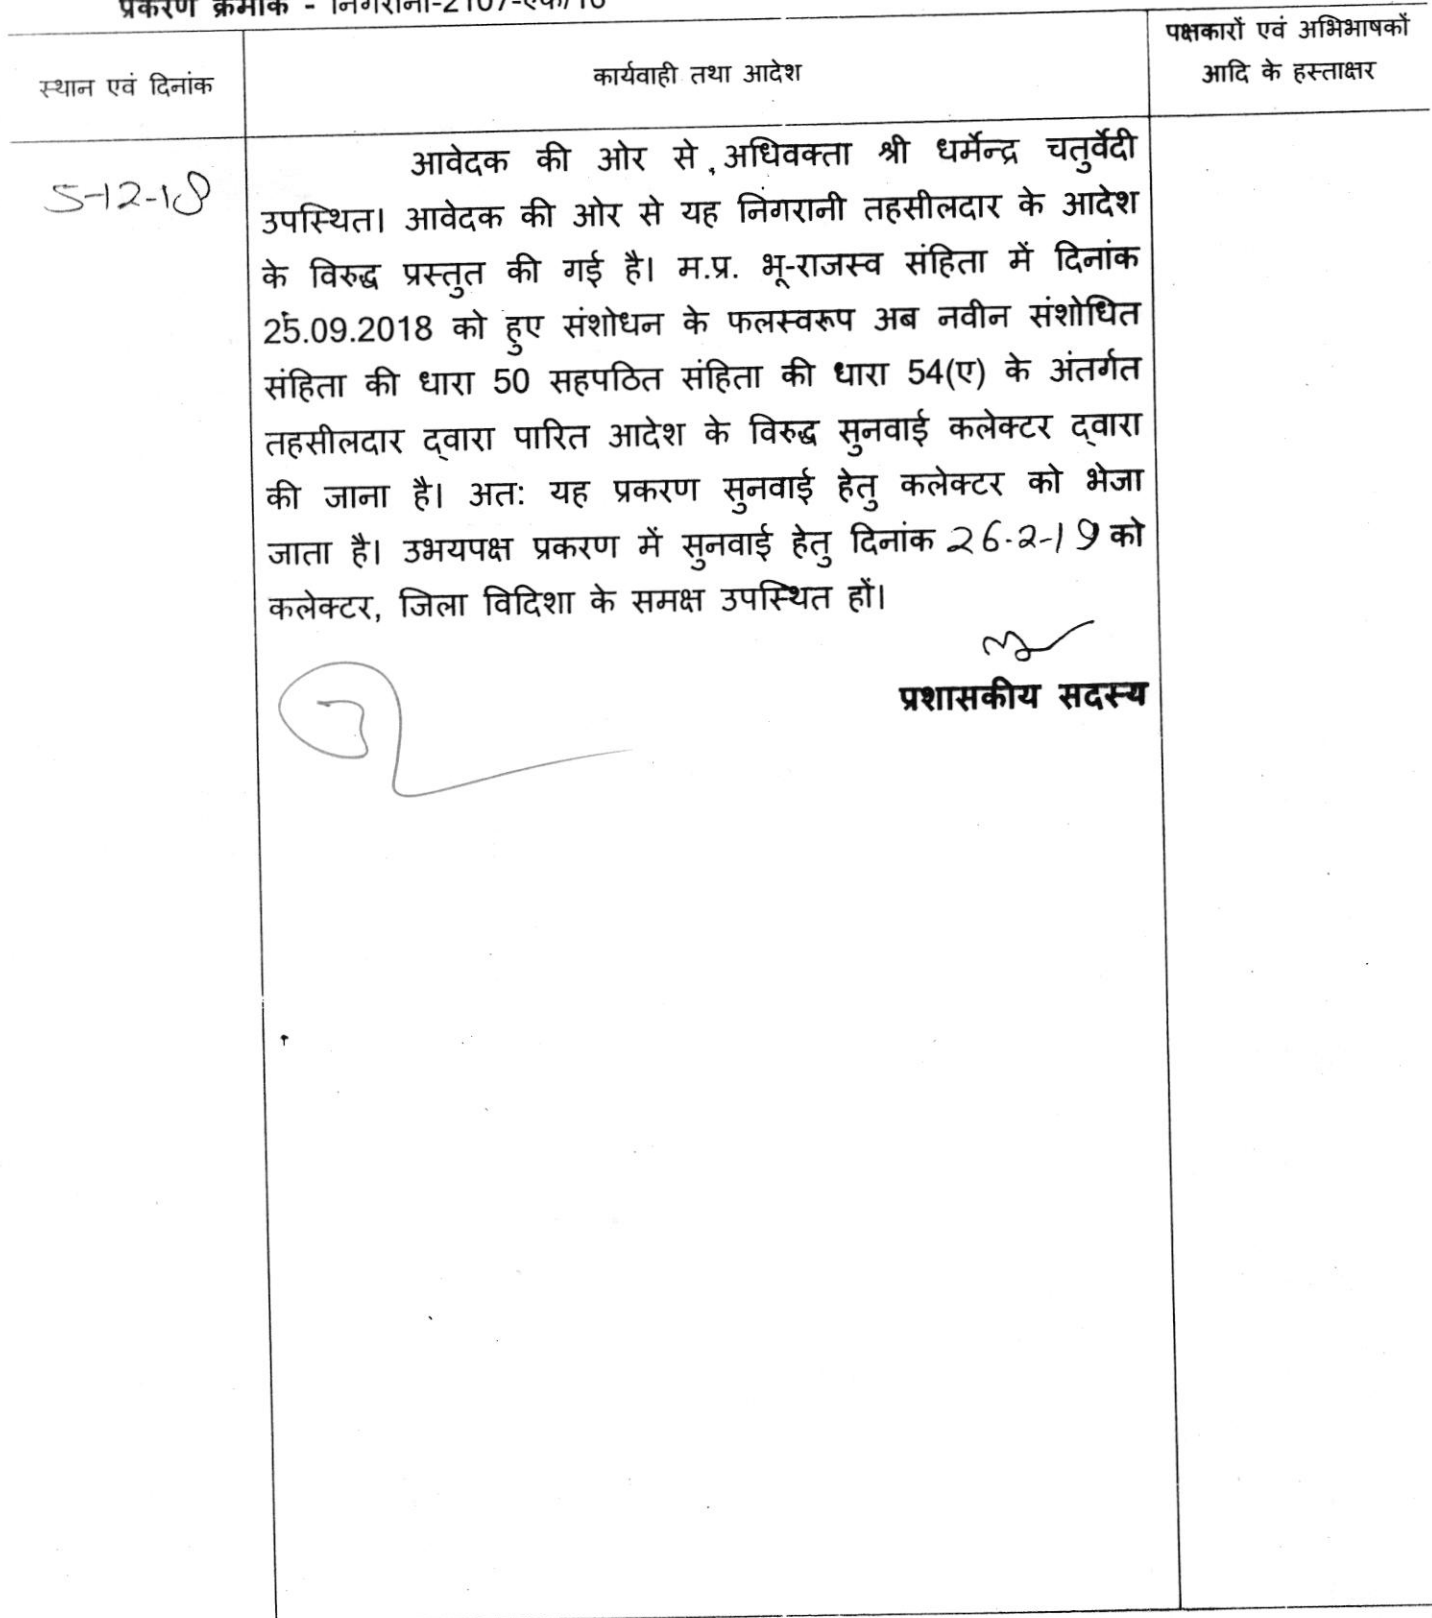 प्रकरण क्रमांक - निगरानी-2107-एक/16
पक्षकारों एवं अभिभाषकों
स्थान एवं दिनांक
कार्यवाही तथा आदेश
आदि के हस्ताक्षर
5-12-18
आवेदक की ओर से , अधिवक्ता श्री धर्मेन्द्र चतुर्वेदी
उपस्थित। आवेदक की ओर से यह निगरानी तहसीलदार के आदेश
के विरुद्ध प्रस्तुत की गई है। म.प्र. भू-राजस्व संहिता में दिनांक
25.09.2018 को हुए संशोधन के फलस्वरूप अब नवीन संशोधित
संहिता की धारा 50 सहपठित संहिता की धारा 54(ए) के अंतर्गत
तहसीलदार द्वारा पारित आदेश के विरुद्ध सुनवाई कलेक्टर द्वारा
की जाना है। अत: यह प्रकरण सुनवाई हेतु कलेक्टर को भेजा
जाता है। उभयपक्ष प्रकरण में सुनवाई हेतु दिनांक 26-2-19 को
कलेक्टर, जिला विदिशा के समक्ष उपस्थित हों।
प्रशासकीय सदस्य